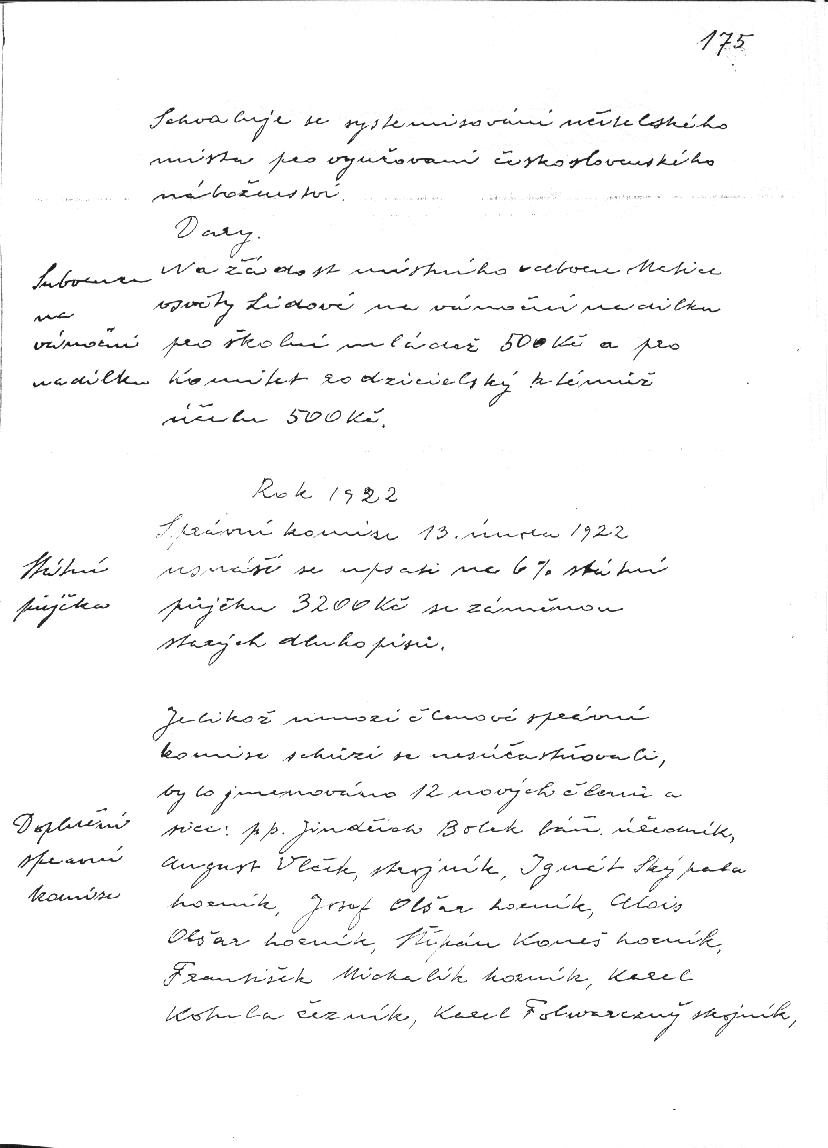 175
Schvaluje se systemisování učitelského
místa pro vyučovaní československého
náboženství.
Dary.
Subvence
na
vánoční
nadílku
Na žádost místního odboru Matice
osvěty Lidové na vánoční nadílku
pro školní mládež 500 Kč a pro
Komitet rodzicielský k témuž
účelu 500 Kč.
Rok 1922
Správní komise 13. února 1922
Státní
půjčka
usnáší se upsati na 6% státní
půjčku 3200 Kč se záměnou
starých dluhopisů.
Jelikož mnozí členové správní
komise schůzí se nesúčastňovali,
bylo jmenováno 12 nových členů a
Doplnění
spravní
komise
sice: pp. Jindřich Bolek báň. úředník,
August Vlčík, strojník, Ignát Skýpala
horník, Josef Olšar horník, Alois
Olšar horník, Štěpán Koneš horník,
František Michalík horník, Karel
Kohula řezník, Karel Folwarczný strojník,